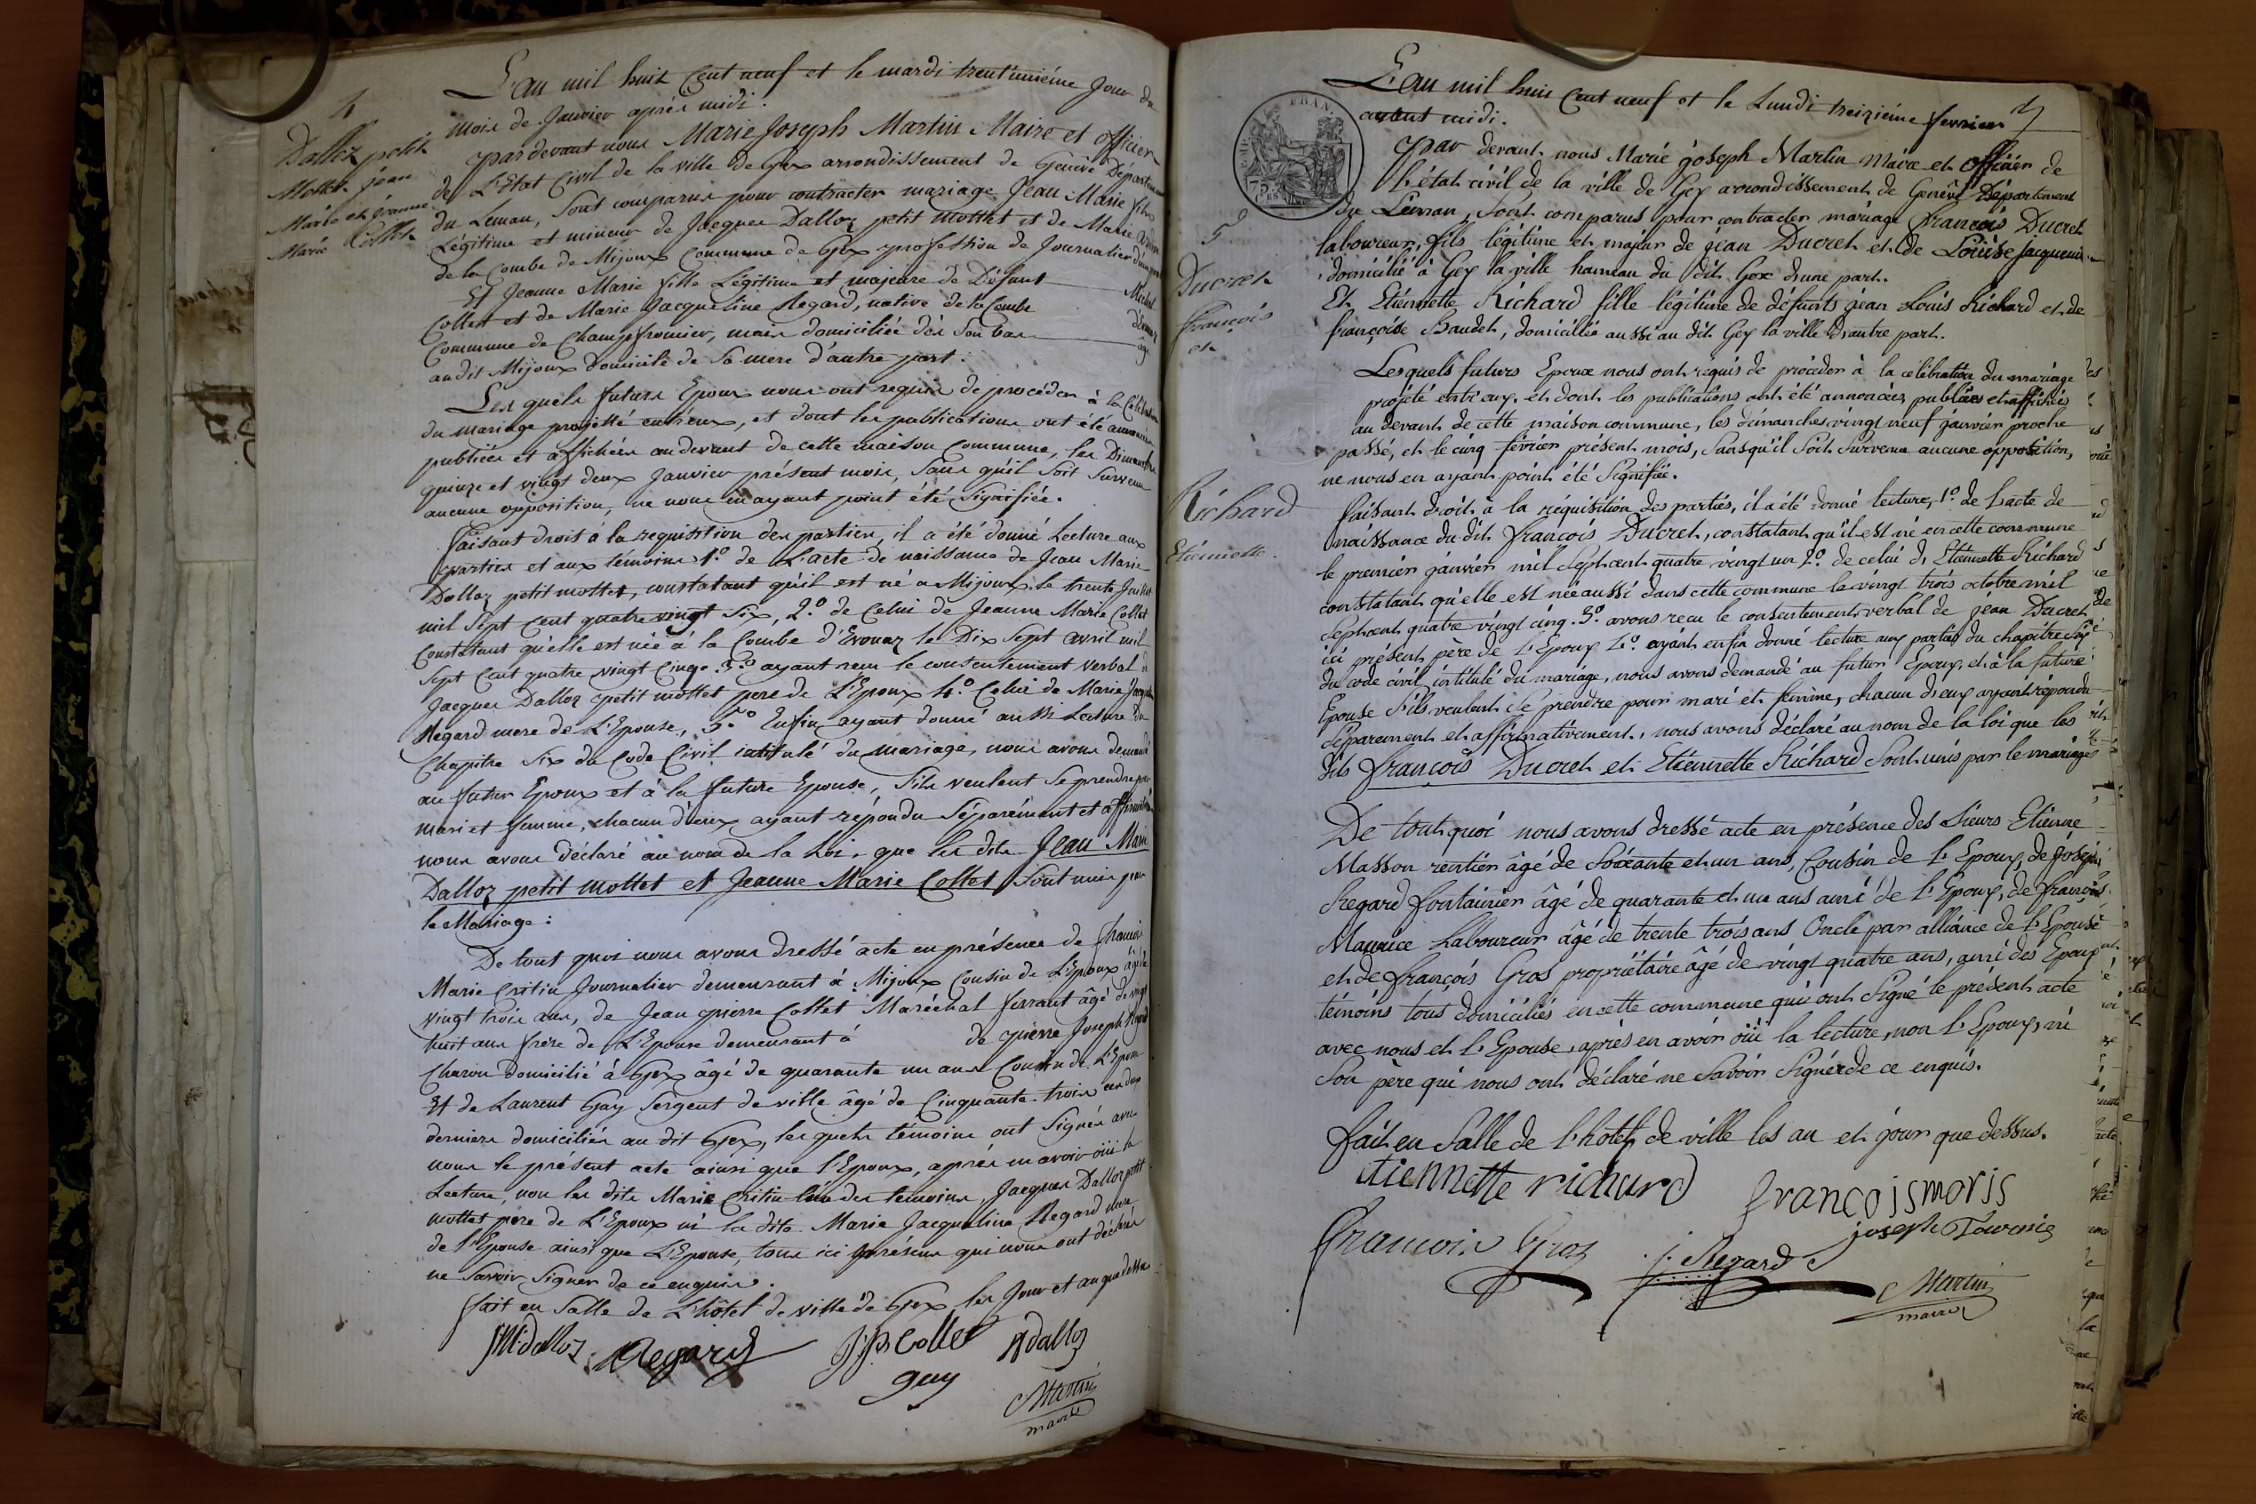 4
Dalloz petit
Mottet jean
Marie et jeanne
Marie Collet
L'an mil huit Cent neuf et le mardi trent'unième Jour du
mois de Janvier après midi.
Pardevant nous Marie Joseph Martin Maire et officier
de L'Etat Civil de la ville de Gex arrondissement de Genève Département
du Leman, Sont comparus pour contracter mariage Jean Marie fils
Légitime et mineur de Jacques Dalloz petit Mottet et de Marie
de la Combe de Mijoux Commune de Gex profession de Journalier d'une part
Et Jeanne Marie fille Légitime et majeure de Défunt Michel
Collet et de Marie Jacqueline Regard, native de la Combe
Commune de Champfromier, mais domiciliée dès Son bas âge
au dit Mijoux domicile de Sa mere d'autre part.
Les quels futurs Epoux nous ont requis de procéder à la Célébration
du mariage projetté entr'eux, et dont les publications ont été annoncées
publiées et affichées au devant de cette maison Commune, les Dimanches
quinze et vingt deux Janvier présent mois, Sans qu'il Soit Survenu
aucune opposition, ne nous en ayant point été Signifiée.
Faisant droit à la requisition des parties, il a été donné Lecture aux
parties et aux témoins 1.º de L'acte de naissance de Jean Marie
Dalloz petit mottet, constatant qu'il est né a Mijoux le trente Juillet
mil Sept Cent quatre vingt Six, 2.º de Celui de Jeanne Marie Collet
Constatant qu'elle est née à la Combe d'Evouaz le Dix Sept avril mil
Sept Cent quatre vingt Cinq. 3.º ayant reçu le consentement verbal de
Jacques Dalloz petit mottet pere de L'Epoux 4.º Celui de Marie Jacqueline
Regard mere de L'Epouse, 5.º Enfin ayant donné aussi Lecture du
Chapitre Six du Code Civil intitulé du mariage, nous avons demandé
au futur Epoux et à la future Epouse, S'ils veulent Se prendre pour
mari et femme, chacun d'eux ayant répondu Séparément et affirmativement
nous avons déclaré au nom de la Loi, que les dits Jean Marie
Dalloz petit mottet et Jeanne Marie Collet Sont unis par
le Mariage:
De tout quoi nous avons dressé acte en présence de
Marie Critin Journalier demeurant à Mijoux Cousin de L'Epoux âgé de
vingt trois ans, de Jean Pierre Collet Maréchal ferrant âgé de vingt
huit ans frère de L'Epouse demeurant à de Pierre Joseph Regard
Charon domicilié à Gex âgé de quarante un ans Cousin de L'Epouse
Et de Laurent Gay Sergent de ville âgé de Cinquante trois ans
derniers domiciliés au dit Gex, les quels témoins ont Signés avec
nous le présent acte ainsi que l'Epoux, après en avoir oüi la
Lecture, non les dits Marie Critin des temoins, Jacques Dalloz petit
mottet pere de L'Epoux ni la dite Marie Jacqueline Regard mere
de l'Epouse ainsi que L'Epouse, tous ici présens qui nous ont déclaré
ne Savoir Signer de ce enquis.
fait en Salle de L'hôtel de ville de Gex les Jour et an que dessus
JMdalloz Regard J:P: Collet Adalloz
gay
Martin
maire
5
L'an mil huit Cent neuf et le Lundi treizième fevrier
avant midi.
5
Ducret
François
et
Richard
Etiennette.
Par devant nous Marie joseph Martin Maire et Officier de
L'état civil de la ville de Gex arrondissement de Genève Département
du Leman, Sont comparus pour contracter mariage françois Ducret
laboureur, fils légitime et majeur de jean Ducret et de Louise Jacquemin
domicilié à Gex la ville hameau du dit Gex d'une part.
Et Etiennette Richard fille légitime de défunts jean Louis Richard et de
françoise Baudet, domiciliée aussi au dit Gex la ville d'autre part.
Lesquels futurs Epoux nous ont requis de procéder à la célébration du mariage
projété entr'eux, et dont les publications ont été annoncées, publiées et affichées
au devant de cette maison commune, les dimanches vingt neuf janvier proche
passé, et le cinq février présent mois, Sans qu'il Soit Survenu aucune opposition,
ne nous en ayant point été Signifiée.
faisant droit à la réquisition des parties, il a été donné lecture, 1.º de l'acte de
naissance du dit françois Ducret, constatant qu'il est né en cette commune
le premier janvier mil Septcent quatre vingt un 2.º de celui d'Etiennette Richard
constatant qu'elle est née aussi dans cette commune le vingt trois octobre mil
Septcent quatre vingt cinq. 3.º avons reçu le consentement verbal de jean Ducret
ici présent père de l'Epoux 4.º ayant enfin donné lecture aux parties du chapitre Six
du code civil, intitulé du mariage, nous avons demandé au futur Epoux, et à la future
Epouse S'ils veulent Se prendre pour mari et femme, chacun d'eux ayant répondu
séparement et affirmativement, nous avons déclaré au nom de la loi que les
dits françois Ducret et Etiennette Richard Sont unis par le mariage
De tout quoi nous avons dressé acte en présence des Sieurs Etienne
Masson rentier âgé de Soixante et un ans, Cousin de l'Epoux, de joseph
Regard fontainier âgé de quarante et un ans ami de l'Epoux, de françois
Maurice Laboureur âgé de trente trois ans Oncle par alliance de l'Epouse
et de françois Gros propriétaire âgé de vingt quatre ans, ami des Epoux
témoins tous domiciliés en cette commune qui ont Signé le présent acte
avec nous et l'Epouse, après en avoir oüi la lecture, non l'Epoux, ni
Son père qui nous ont déclaré ne Savoir Signer de ce enquis.
fait en Salle de l'hôtel de ville les an et jour que dessus.
etiennette richard francoismoris
joseph
francois Gros j. Regard
Martin
maire